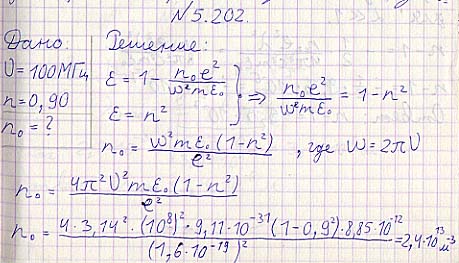 №5.202.
Дано: Решение:
ν = 100 МГц
n = 0,90
n₀ = ?
ε = 1 - n₀e²/ω²mε₀
ε = n²
} ⇒ n₀e²/ω²mε₀ = 1 - n²
n₀ = ω²mε₀(1-n²)/e² , где ω = 2πν
n₀ = 4π²ν²mε₀(1-n²)/e²
n₀ = 4·3,14²·(10⁸)²·9,11·10⁻³¹(1-0,9²)·8,85·10⁻¹²/(1,6·10⁻¹⁹)² = 2,4·10¹³ м⁻³